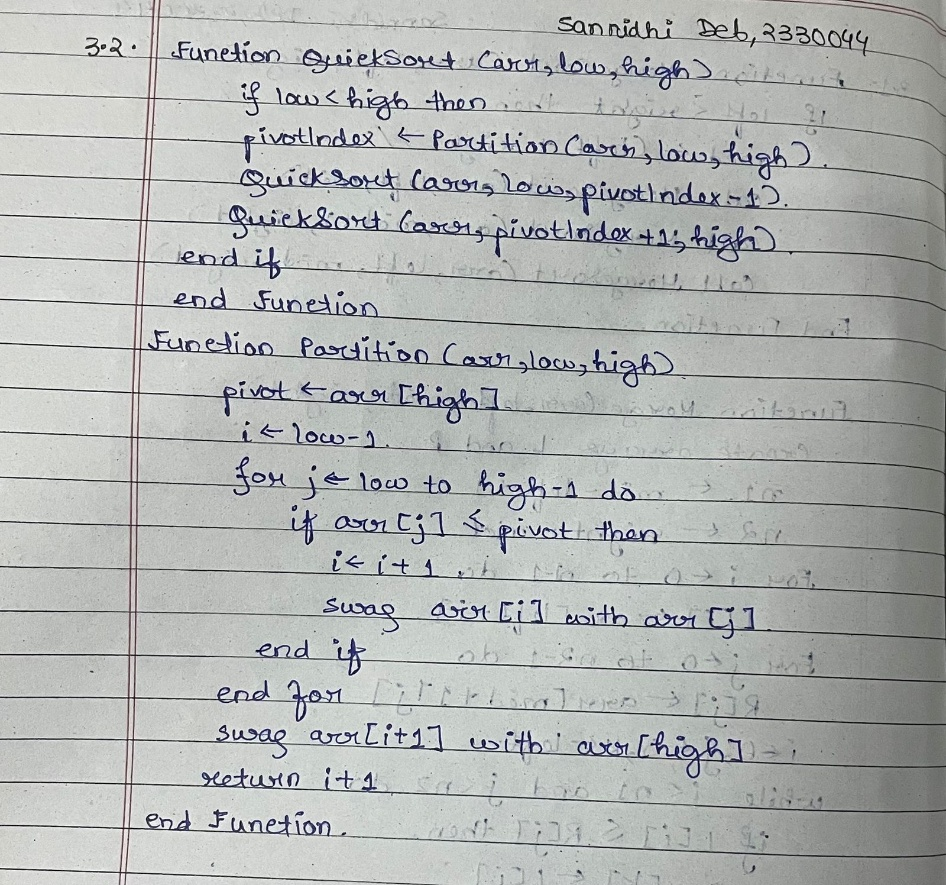 Sannidhi Deb, 2330044
3.2. Function QuickSort (arr, low, high)
if low < high then
pivotIndex ← Partition (arr, low, high).
QuickSort (arr, low, pivotIndex - 1).
QuickSort (arr, pivotIndex + 1, high)
end if
end Function
Function Partition (arr, low, high)
pivot ← arr [high]
i ← low - 1.
for j ← low to high - 1 do
if arr [j] ≤ pivot then
i ← i + 1
swap arr [i] with arr [j]
end if
end for
swap arr [i+1] with arr [high]
return i + 1
end Function.